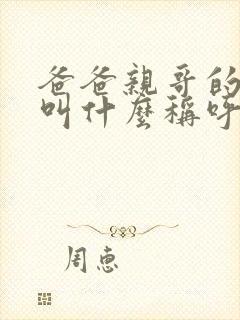 爸爸親哥的
叫什麽稱呼
周惠